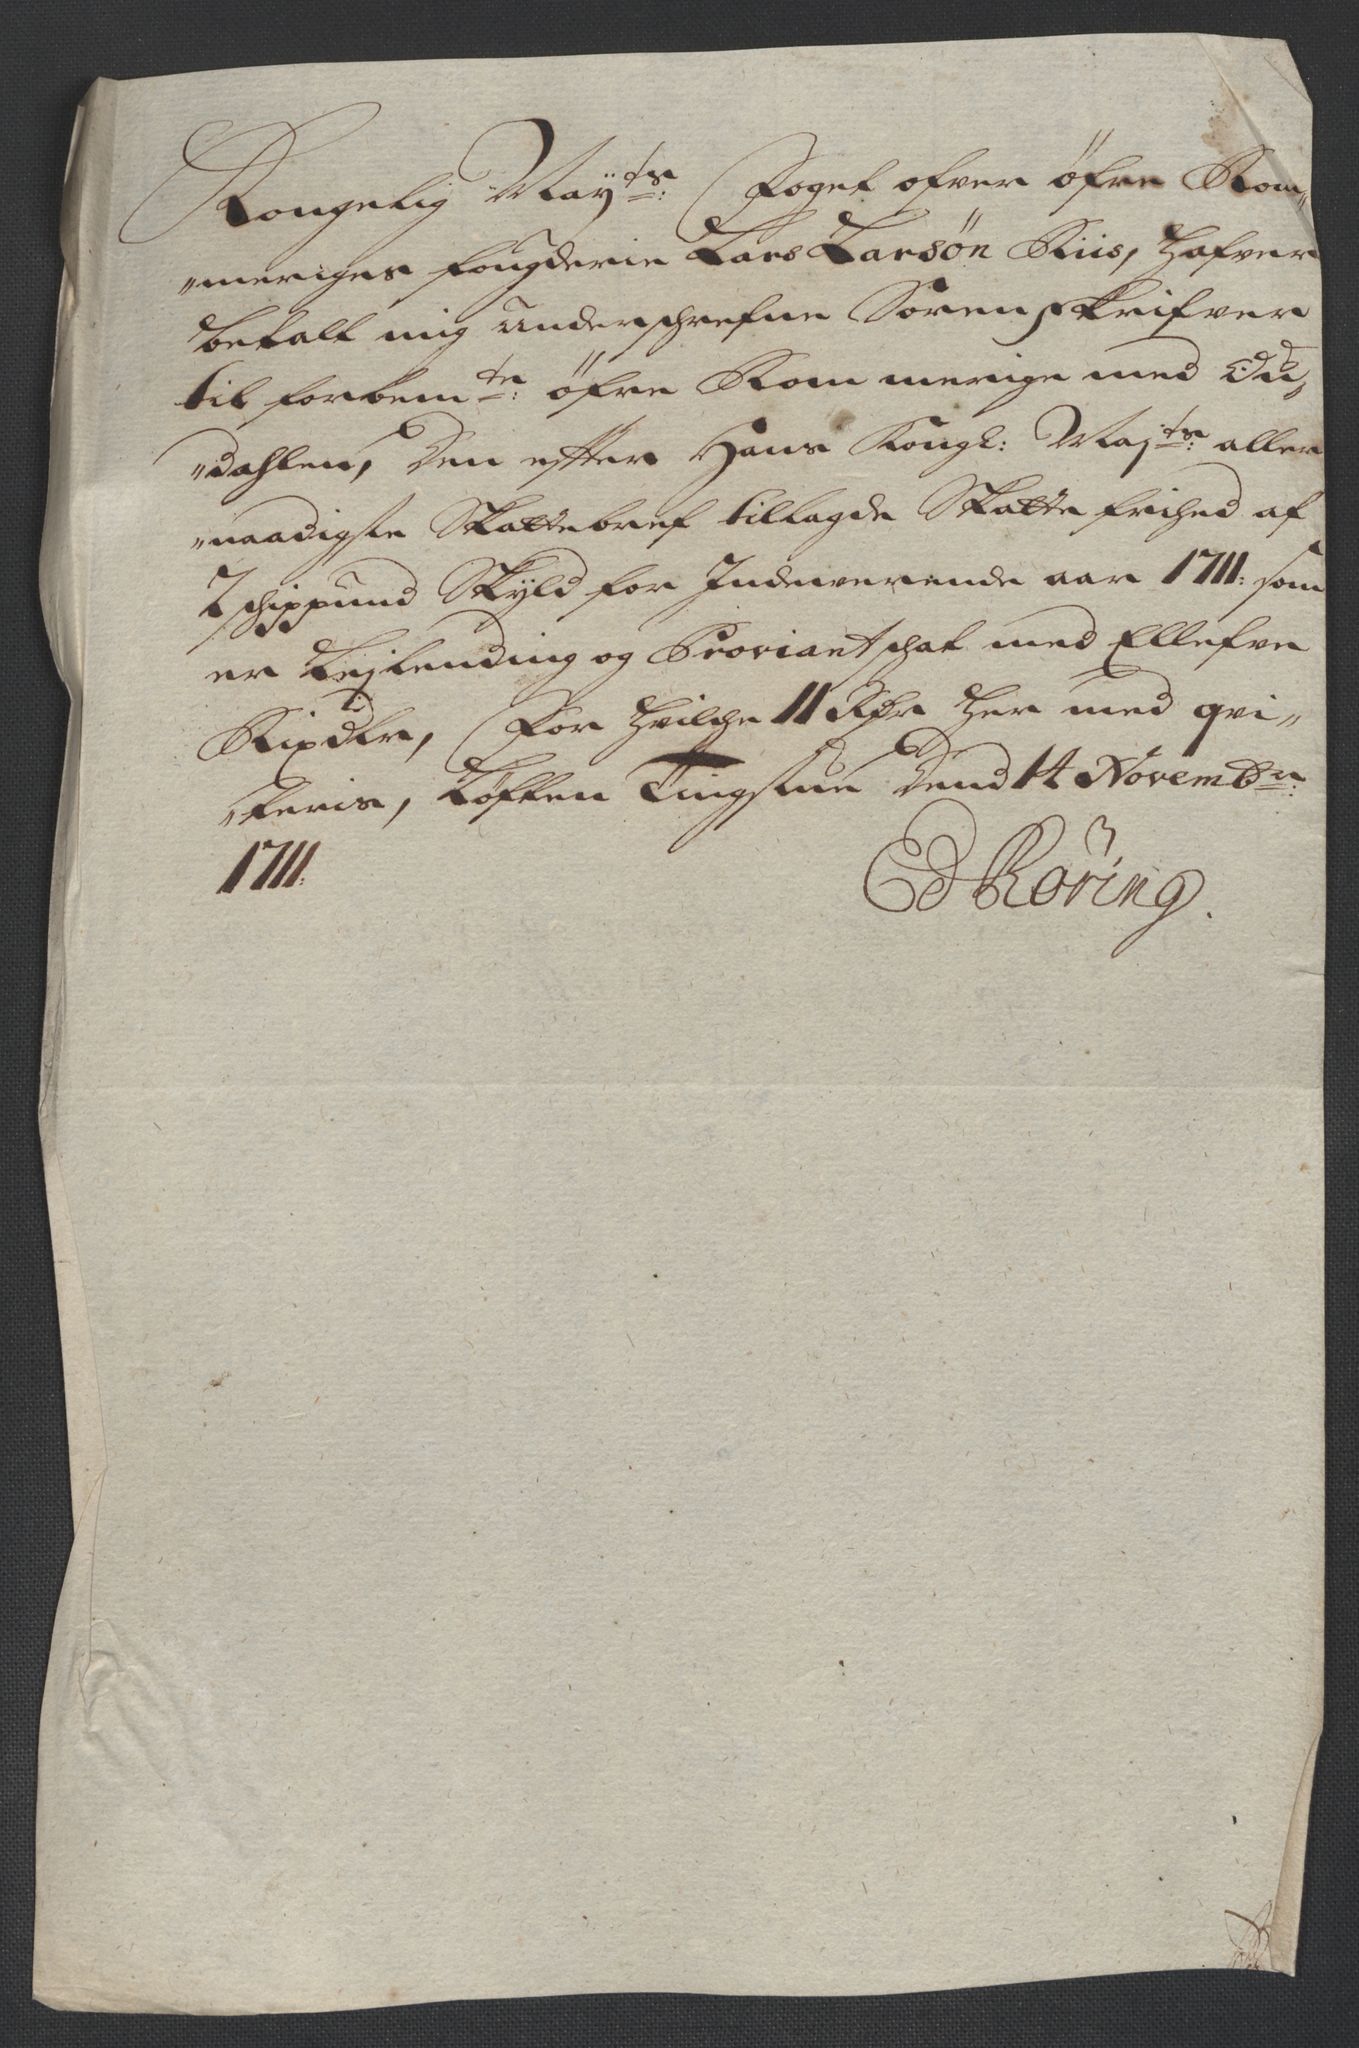 Kongelig Mayts: Foget ofver öfre Rom„
„meriges fougderie Lars Larsön Riis, hafver
betalt mig underschrefne Sorenskrifver
til forbemte: öfre Rommerige med Ou„
„dahlen, Den efter Hans Kongl: Majts: aller
„naadigste Skattebref tillagde Skatte frihed af
2 schippund Skyld for Indeværende aar 1711: som
er Leylending og Proviant schat med Ellefve
Rixdlr, For hvilche 11 Rdr her med qvi„
„teris, Løften Tingstue Dend 14 Novembr:
1711.
Ed Röring.